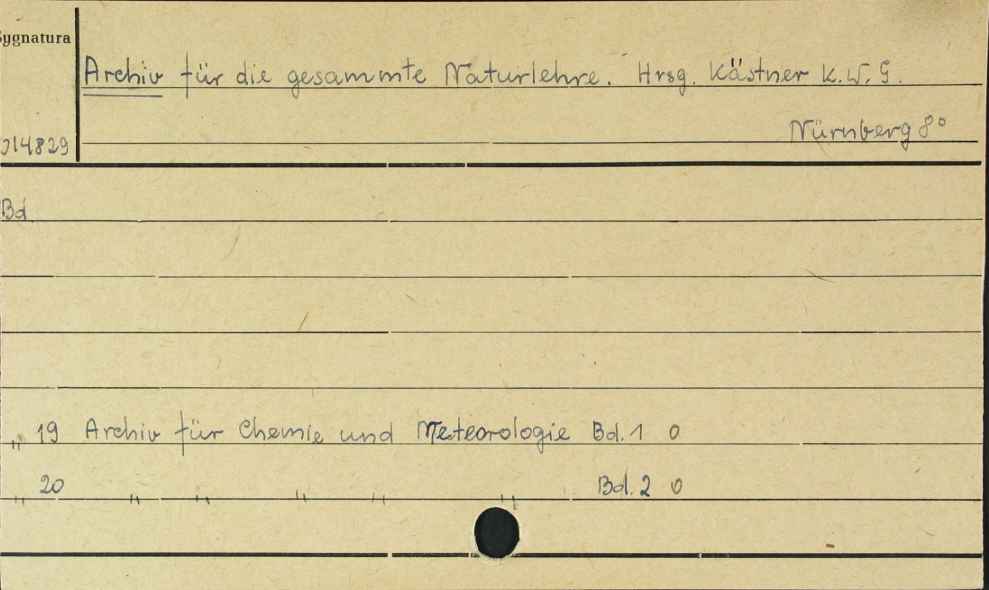 Sygnatura
Archiv für die gesammte Naturlehre. Hrsg. Kästner K.W.G.
Nürnberg 8°
214829
Bd
„ 19 Archiv für Chemie und Meteorologie Bd. 1 0
„ 20 „ „ „ „ „ Bd. 2 0